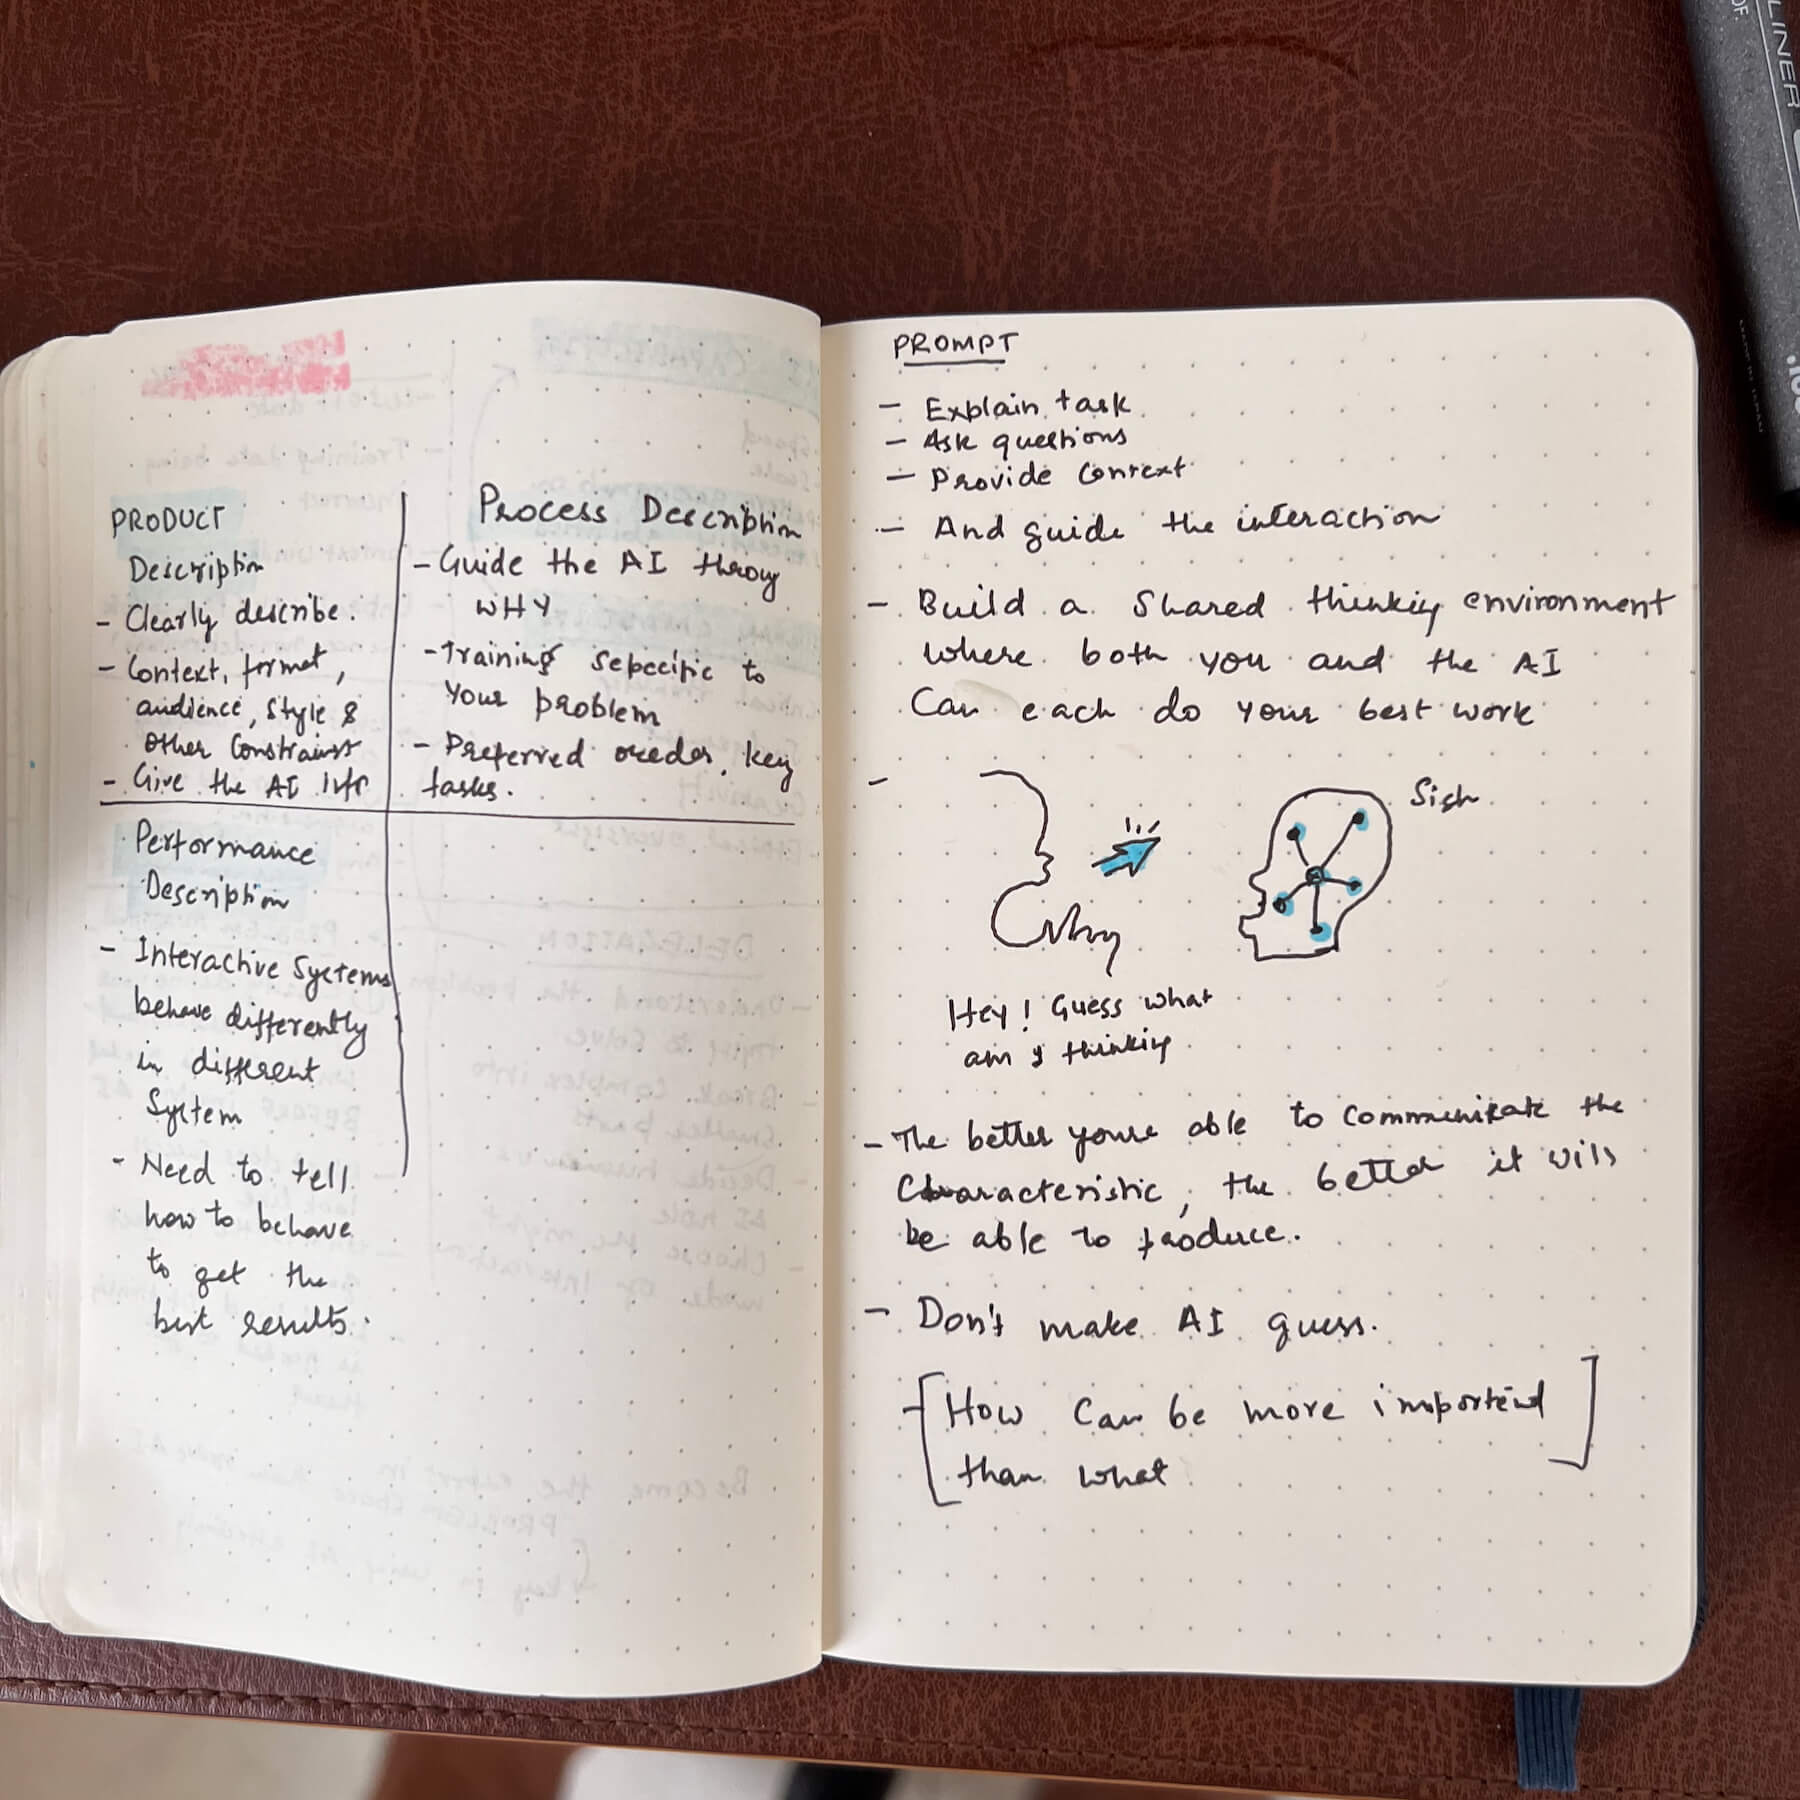 PRODUCT
Description
- Clearly describe.
- Context, format,
audience, style &
other Constrainst
- Give the AI Info
Process Description
- Guide the AI throug
WHY
- Training sepecific to
your problem
- Preferred oreder, key
tasks.
Performance
Description
- Interactive Systems
behave differently
in different
System
- Need to tell
how to behave
to get the
best results.
PROMPT
- Explain task
- Ask questions
- Provide Context
- And guide the interaction
- Build a Shared thinking environment
where both you and the AI
Can each do your best work
-
Sigh
Hey! Guess what
am I thinking
- The better youre able to communicate the
Characteristic, the better it will
be able to produce.
- Don't make AI guess.
- [How Can be more importend
than what]
LINER